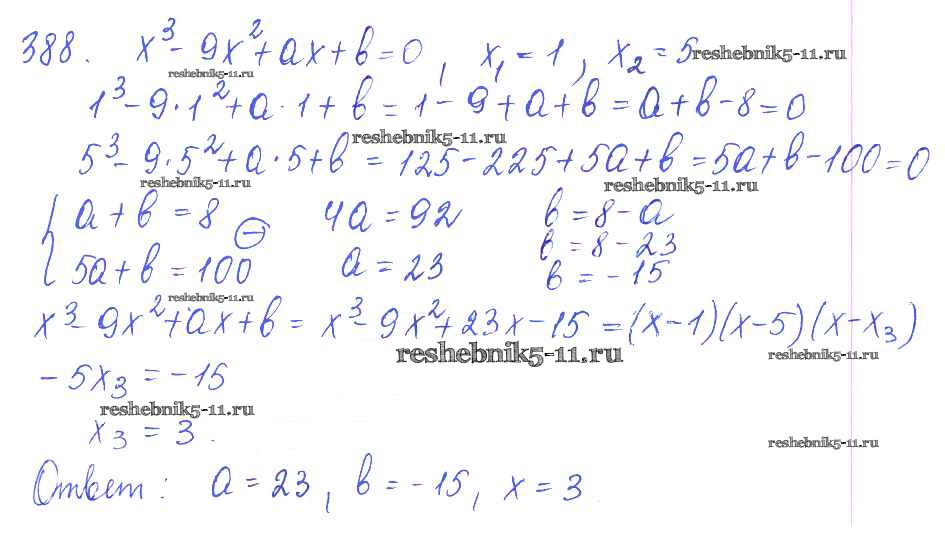 388. x³ - 9x² + ax + b = 0, x₁ = 1, x₂ = 5 reshebnik5-11.ru
reshebnik5-11.ru
1³ - 9·1² + a·1 + b = 1 - 9 + a + b = a + b - 8 = 0
reshebnik5-11.ru
5³ - 9·5² + a·5 + b = 125 - 225 + 5a + b = 5a + b - 100 = 0
reshebnik5-11.ru reshebnik5-11.ru
{ a + b = 8 4a = 92 b = 8 - a
⊖ b = 8 - 23
5a + b = 100 a = 23 b = -15
reshebnik5-11.ru
x³ - 9x² + ax + b = x³ - 9x² + 23x - 15 = (x-1)(x-5)(x-x₃)
reshebnik5-11.ru reshebnik5-11.ru
-5x₃ = -15
reshebnik5-11.ru
x₃ = 3.
reshebnik5-11.ru
Ответ: a = 23, b = -15, x = 3